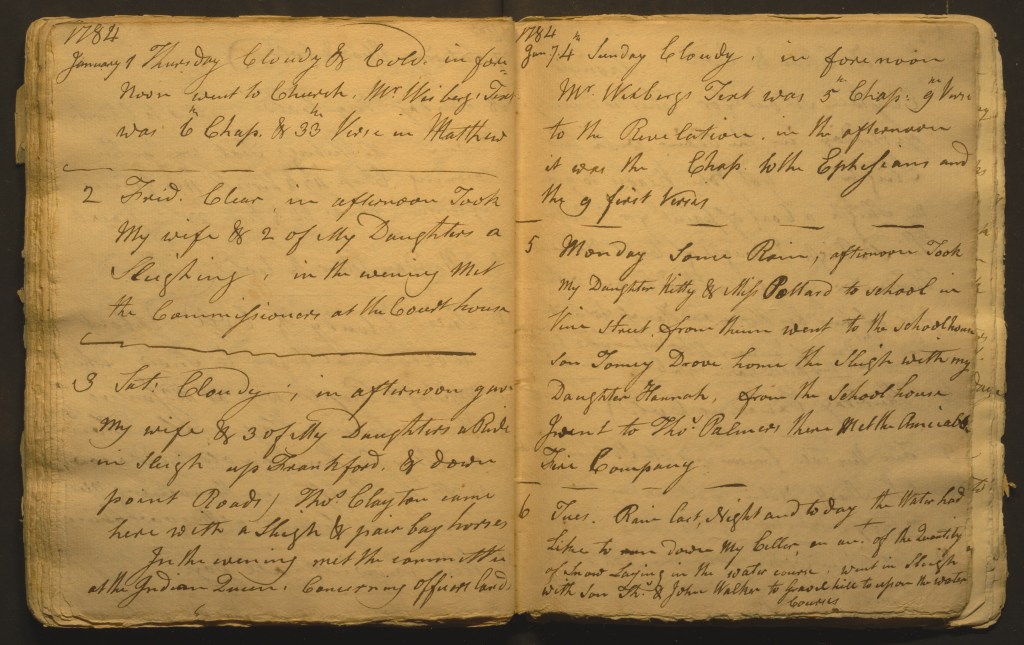 1784
January 1 Thursday Cloudy & Cold. in fore=
Noon went to Church, Mr. Wibergs Text
was 6th Chap. & 33th Verse in Matthew
2 Frid. Clear in afternoon Took
My wife & 2 of My Daughters a
Sleighing, in the evening Met
the Commissioners at the Court house
3 Sat: Cloudy, in afternoon gave
My wife & 3 of My Daughters a Ride
in Sleigh up Frankford, & down
point Roads, Thos. Clayton came
here with a Sleigh & pair bay horses
In the evening met the committe
at the Indian Queen, Concerning Officers
1784
4th Sunday Cloudy, in forenoon
Mr. Wibergs Text was 5th Chap: 9th Verse
to the Revelation. in the afternoon
it was the Chap. to the Ephesians and
the 9 first Verses
5 Monday Some Rain, afternoon Took
My Daughter Kitty & Miss Pollard to school in
Vine Street. from them went to the schoolhouse
son Tomey Drove home the Sleigh with my
Daughter Hannah, from the School house
I went to Thos. Palmers there Met the Amicable
Fire Company
6 Tues. Rain last Night and to day the Water had
Like to run down My Celler, on act. of the Quantity
of Snow Laying in the water course, went in Sleigh
with son Thos. & John Walker to Gravel hill to upon the water
Courses